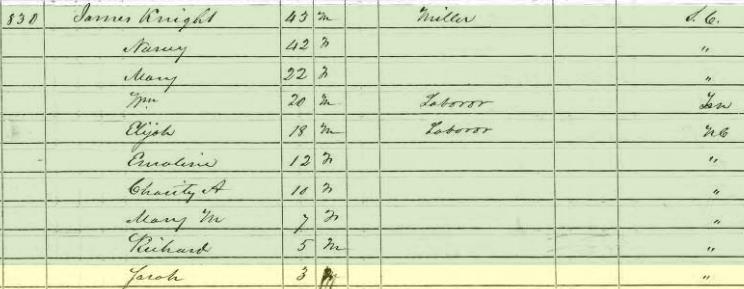 830 James Knight 43 M Miller S.C.
Nancy 42 F "
Mary 22 F "
Wm 20 M Laboror Ten
Elijah 18 M Laboror N C
Emoline 12 F "
Charity A 10 F "
Mary M 7 F "
Richard 5 M "
Sarah 3 "